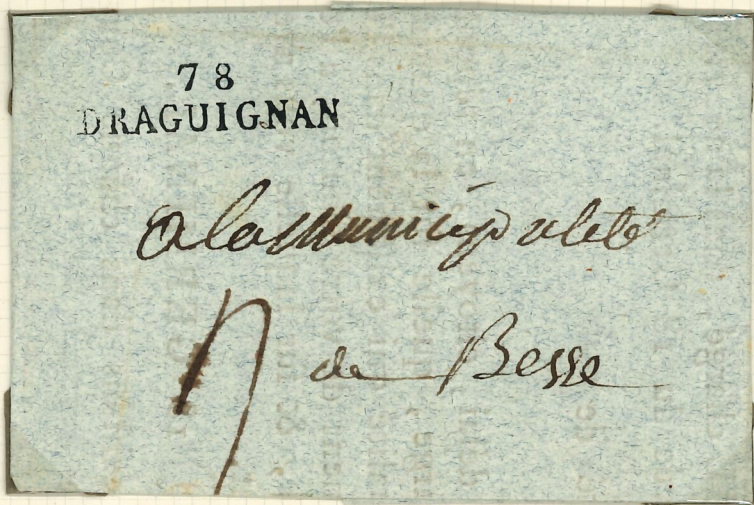 78
DRAGUIGNAN
a la Municipalité
de Besse